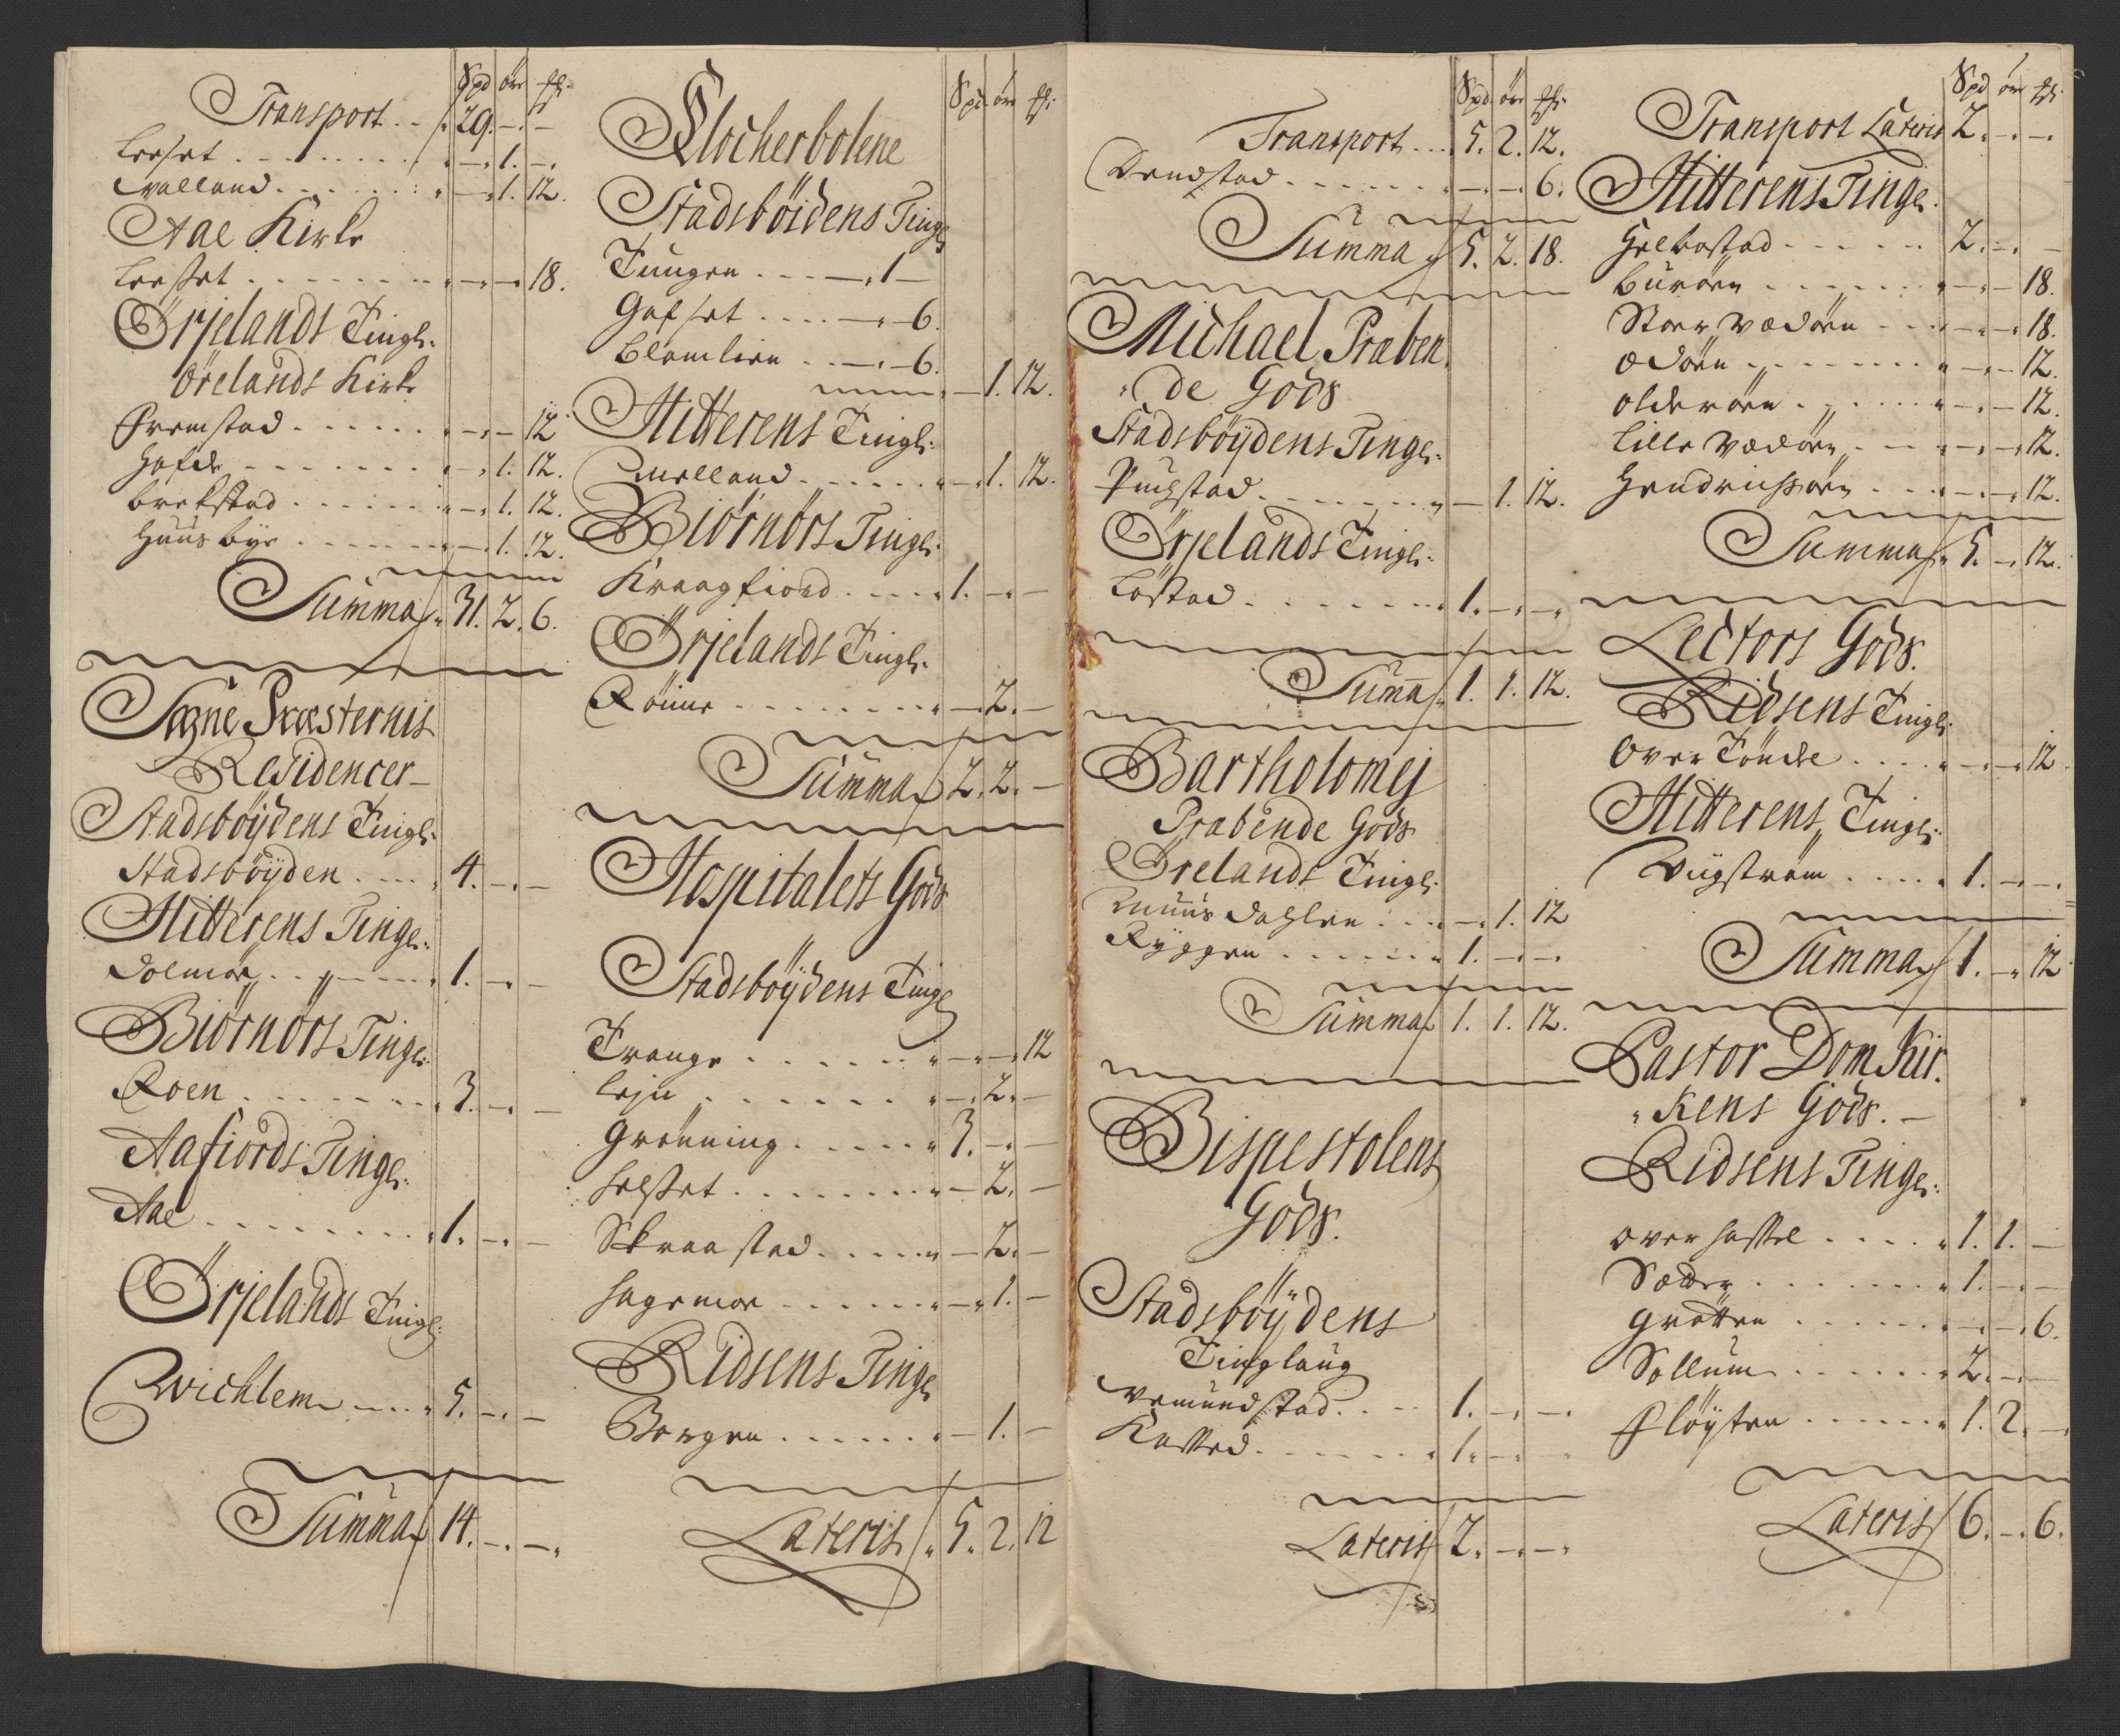 Spd öre
Transport . . 29. – –
Leeset . . . . . . – 1. –
Qvalland . . . . . . – 1. 12.
Aae Kirke
Leeset . . . . . . – – 18.
Örjelands Tingl:
Örelands Kirke
Fremstad . . . . . . – – 12
Hofde . . . . . . – 1. 12.
brekstad . . . . . . – 1. 12.
Huusbye . . . . . . – 1. 12.
Summa 31. 2. 6.
Sogne Præsternis
Residencer
Stadsböÿdens Tingl:
Stadsböÿden . . . . 4. – –
Hitterens Tingl:
Dolmöe . . . . 1. – –
Biörnörs Tingl:
Roen . . . . . . 3. – –
Aafiords Tingl:
Aae . . . . . . 1. – –
Örjelands Tingl:
Qwichlem . . . . 5. – –
Summa 14. – –
Spd öre
Klocherbolene
Stadsböidens Tingl
Tungen . . . – 1 –
Gafset . . . . – – 6.
blomlien . . . – – 6.
– 1. 12.
Hitterens Tingl:
Qvelland . . . . . . – 1. 12.
Biörnörs Tingl:
Kraagfiord . . . . 1. – –
Örjelands Tingl:
Rönne . . . . . . – 2. –
Summa 2. 2. –
Hospitalets Gods
Stadsböÿdens Tingl
Trange . . . . . . – – 12
Lejn . . . . . . – 2. –
Grönning . . . . . 3. – –
Selset . . . . . . – 2. –
Skraastad . . . . . – 2. –
Hagemoe . . . . . . – 1. –
Ridsens Tingl
Borgen . . . . . . – 1. –
Lateris 5. 2. 12
Spd öre
Transport . . . 5. 2. 12.
Dendstad . . . . . . – – 6.
Summa 5. 2. 18.
Michael Præben
de Gods
Stadsböÿdens Tingl:
Puchstad . . . . . . – 1. 12.
Örjelands Tingl:
Löstad . . . . . . 1. – –
Summa 1. 1. 12.
Bartholomej
Præbende Gods
Örelands Tingl:
Muusdahlen . . . – 1. 12
Ryggen . . . . . . 1. – –
Summa 1. 1. 12.
Bispestolens
Gods.
Stadsböÿdens
Tinglaug
Vemundstad . . . . 1. – –
Kotted . . . . . . 1. – –
Lateris 2. – –
Spd öre
Transport Lateris 2. – –
Hitterens Tingl.
Helbostad . . . . . 2. – –
Buröen . . . . . . – – 18.
Stoer Vedöen . . . – – 18.
Ædöen . . . . . . – – 12.
Olderöen . . . . . – – 12.
Lille Vædöen . . . – – 12.
Hendrichsöen . . . – – 12.
Summa 5. – 12.
Lectors Gods.
Ridsens Tingl:
Over Töndle . . . . – – 12
Hitterens Tingl:
Qvigström . . . . . 1. – –
Summa 1. – 12
Pastor Dom Kir.
kens Gods. –
Ridsens Tingl:
Overhassel . . . . 1. 1. –
Sætter . . . . . . 1. – –
Grötten . . . . . . – – 6.
Sollum . . . . . . 2. – –
Flöÿten . . . . . . 1. 2. –
Lateris 6. – 6.